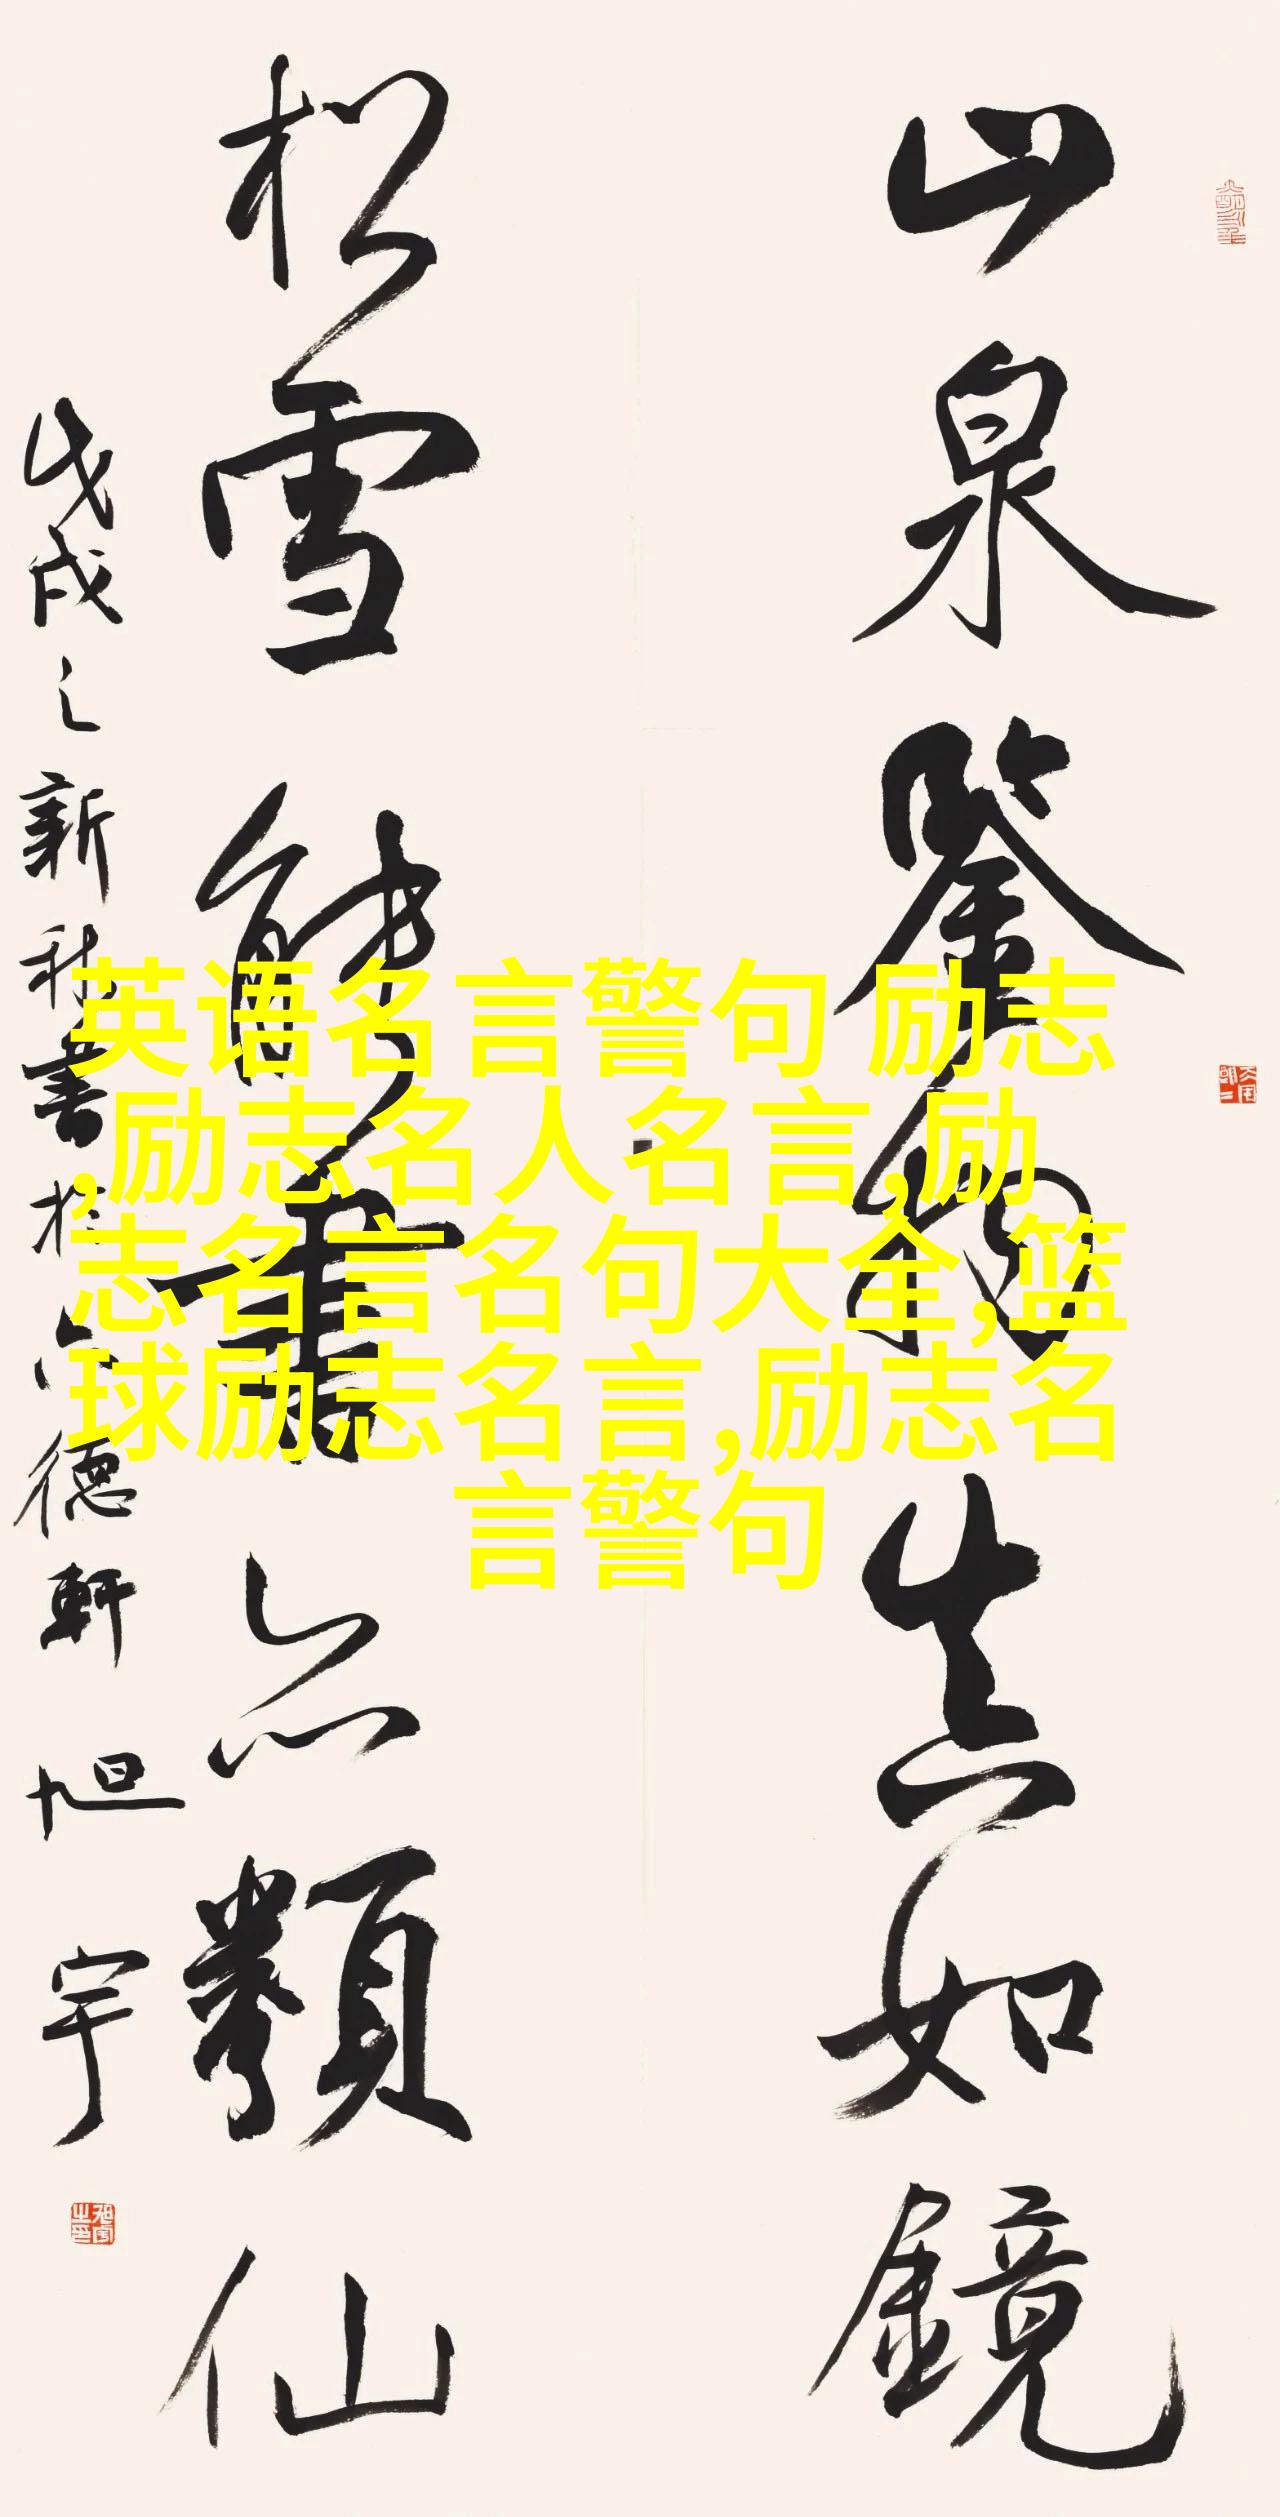 山泉鑒物真如鏡
松雪亦類仙
戊戌之新秋書於德軒旭宇
英语名言警句 励志
,励志名人名言,励
志名言名句大全,篮
球励志名言,励志名
言警句